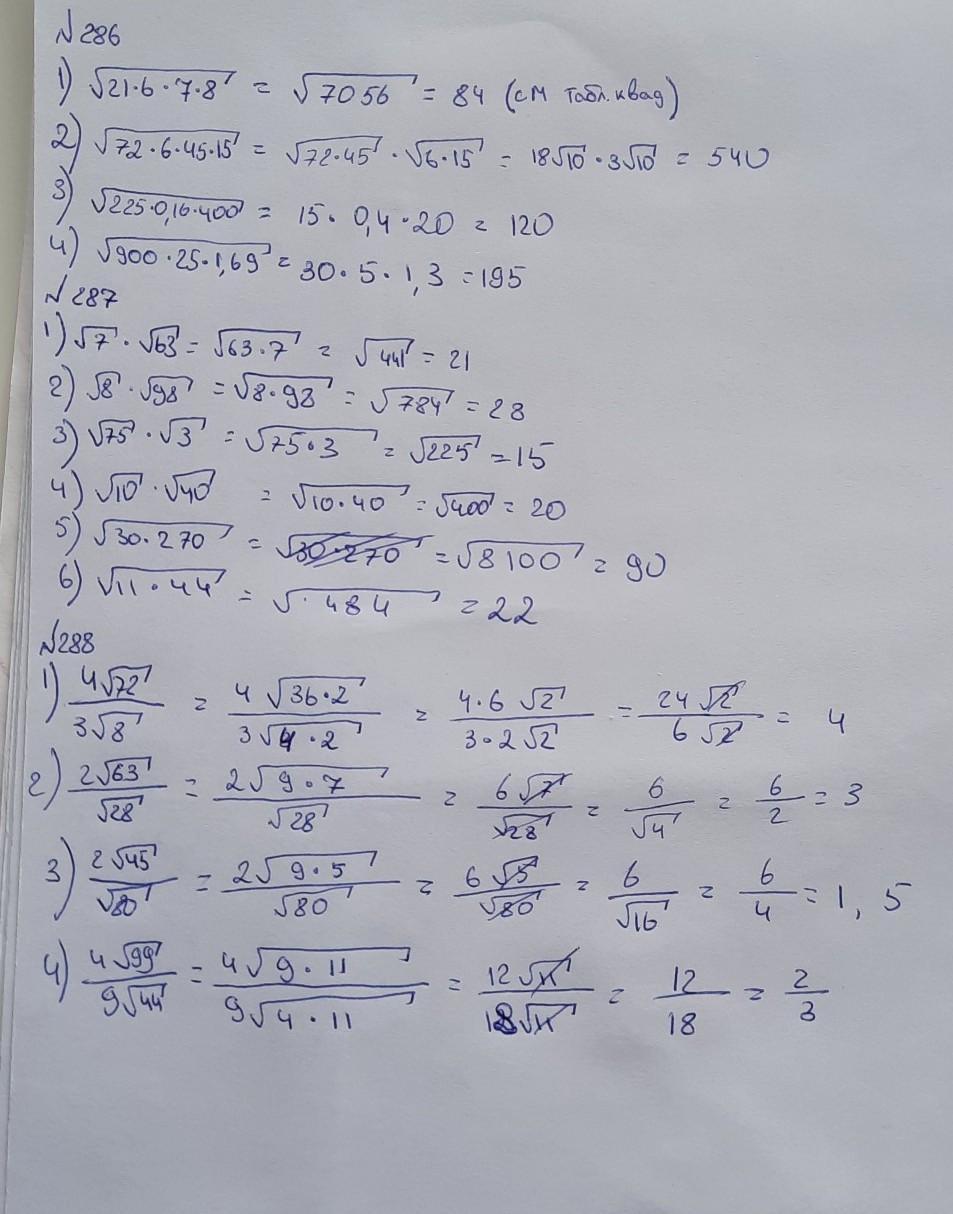 №286
1) √21·6·7·8 = √7056 = 84 (см табл.квад)
2) √72·6·45·15 = √72·45 · √6·15 = 18√10 · 3√10 = 540
3) √225·0,16·400 = 15 · 0,4 · 20 = 120
4) √900·25·1,69 = 30 · 5 · 1,3 = 195
№287
1) √7 · √63 = √63·7 = √441 = 21
2) √8 · √98 = √8·98 = √784 = 28
3) √75 · √3 = √75·3 = √225 = 15
4) √10 · √40 = √10·40 = √400 = 20
5) √30·270 = √30·270 = √8100 = 90
6) √11·44 = √484 = 22
№288
1) 4√72/3√8 = 4√36·2/3√4·2 = 4·6√2/3·2√2 = 24√2/6√2 = 4
2) 2√63/√28 = 2√9·7/√28 = 6√7/√28 = 6/√4 = 6/2 = 3
3) 2√45/√80 = 2√9·5/√80 = 6√5/√80 = 6/√16 = 6/4 = 1,5
4) 4√99/9√44 = 4√9·11/9√4·11 = 12√11/18√11 = 12/18 = 2/3